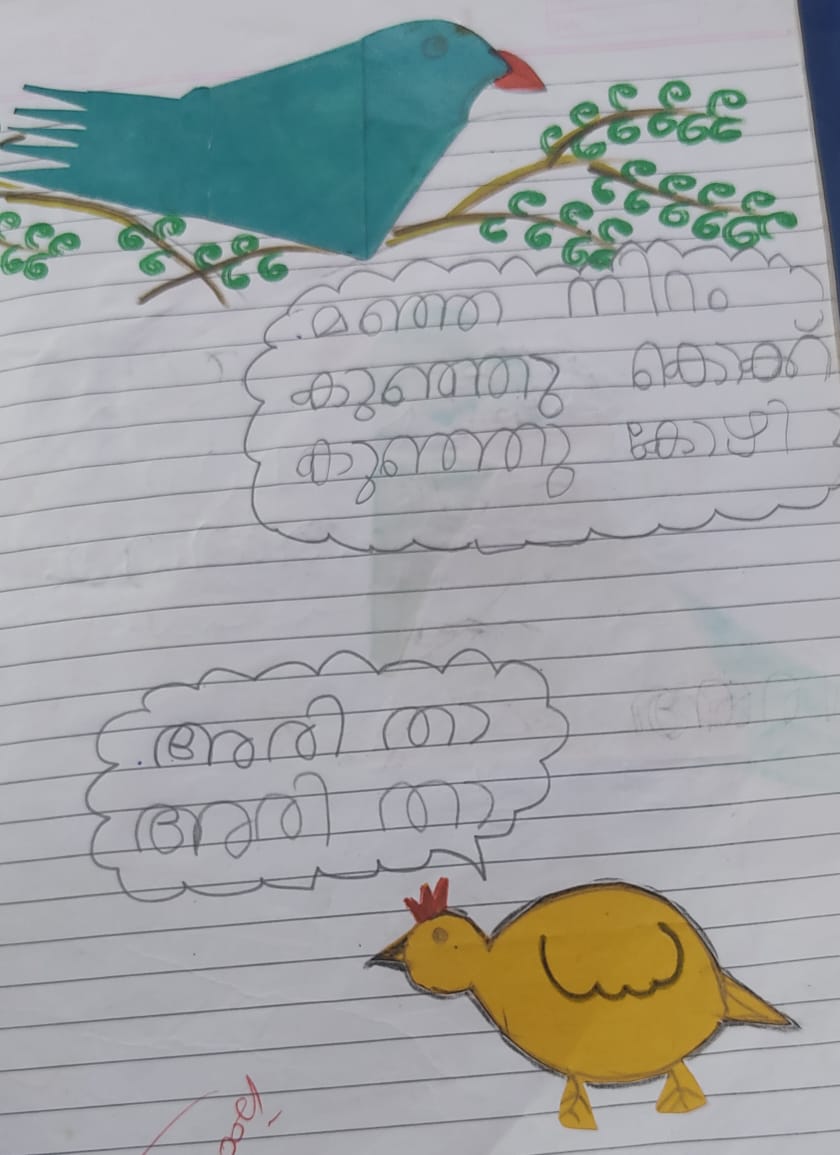 മഞ്ഞ നിറം
കുഞ്ഞു കൊക്ക്
കുഞ്ഞു കോഴി
അരി താ
അരി താ